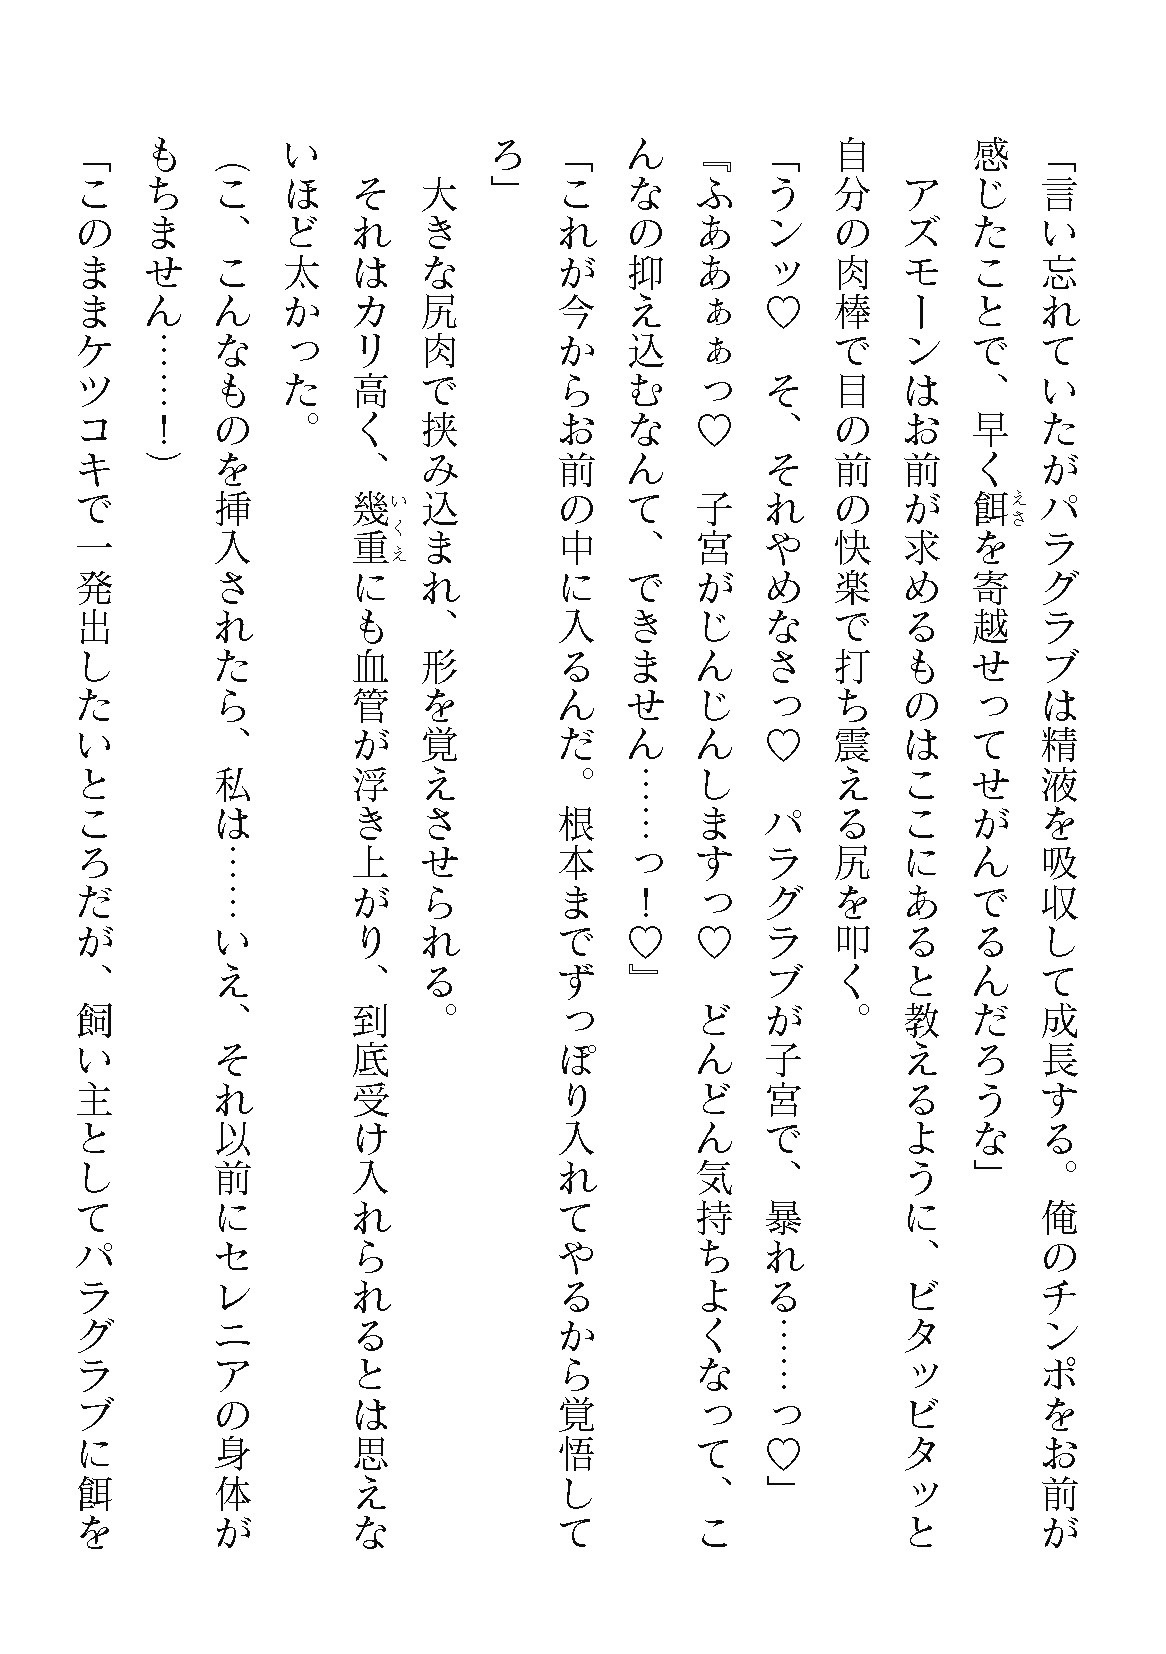 「言い忘れていたがパラグラブは精液を吸収して成長する。俺のチンポをお前が
えさ
感じたことで、早く餌を寄越せってせがんでるんだろうな」
アズモーンはお前が求めるものはここにあると教えるように、ビタッビタッと
自分の肉棒で目の前の快楽で打ち震える尻を叩く。
「うンッ♡　そ、それやめなさっ♡　パラグラブが子宮で、暴れる……っ♡」
『ふああぁぁっ♡　子宮がじんじんしますっ♡　どんどん気持ちよくなって、こ
んなの抑え込むなんて、できません……っ！♡』
「これが今からお前の中に入るんだ。根本までずっぽり入れてやるから覚悟して
ろ」
大きな尻肉で挟み込まれ、形を覚えさせられる。
いくえ
それはカリ高く、幾重にも血管が浮き上がり、到底受け入れられるとは思えな
いほど太かった。
（こ、こんなものを挿入されたら、私は……いえ、それ以前にセレニアの身体が
もちません……！）
「このままケツコキで一発出したいところだが、飼い主としてパラグラブに餌を